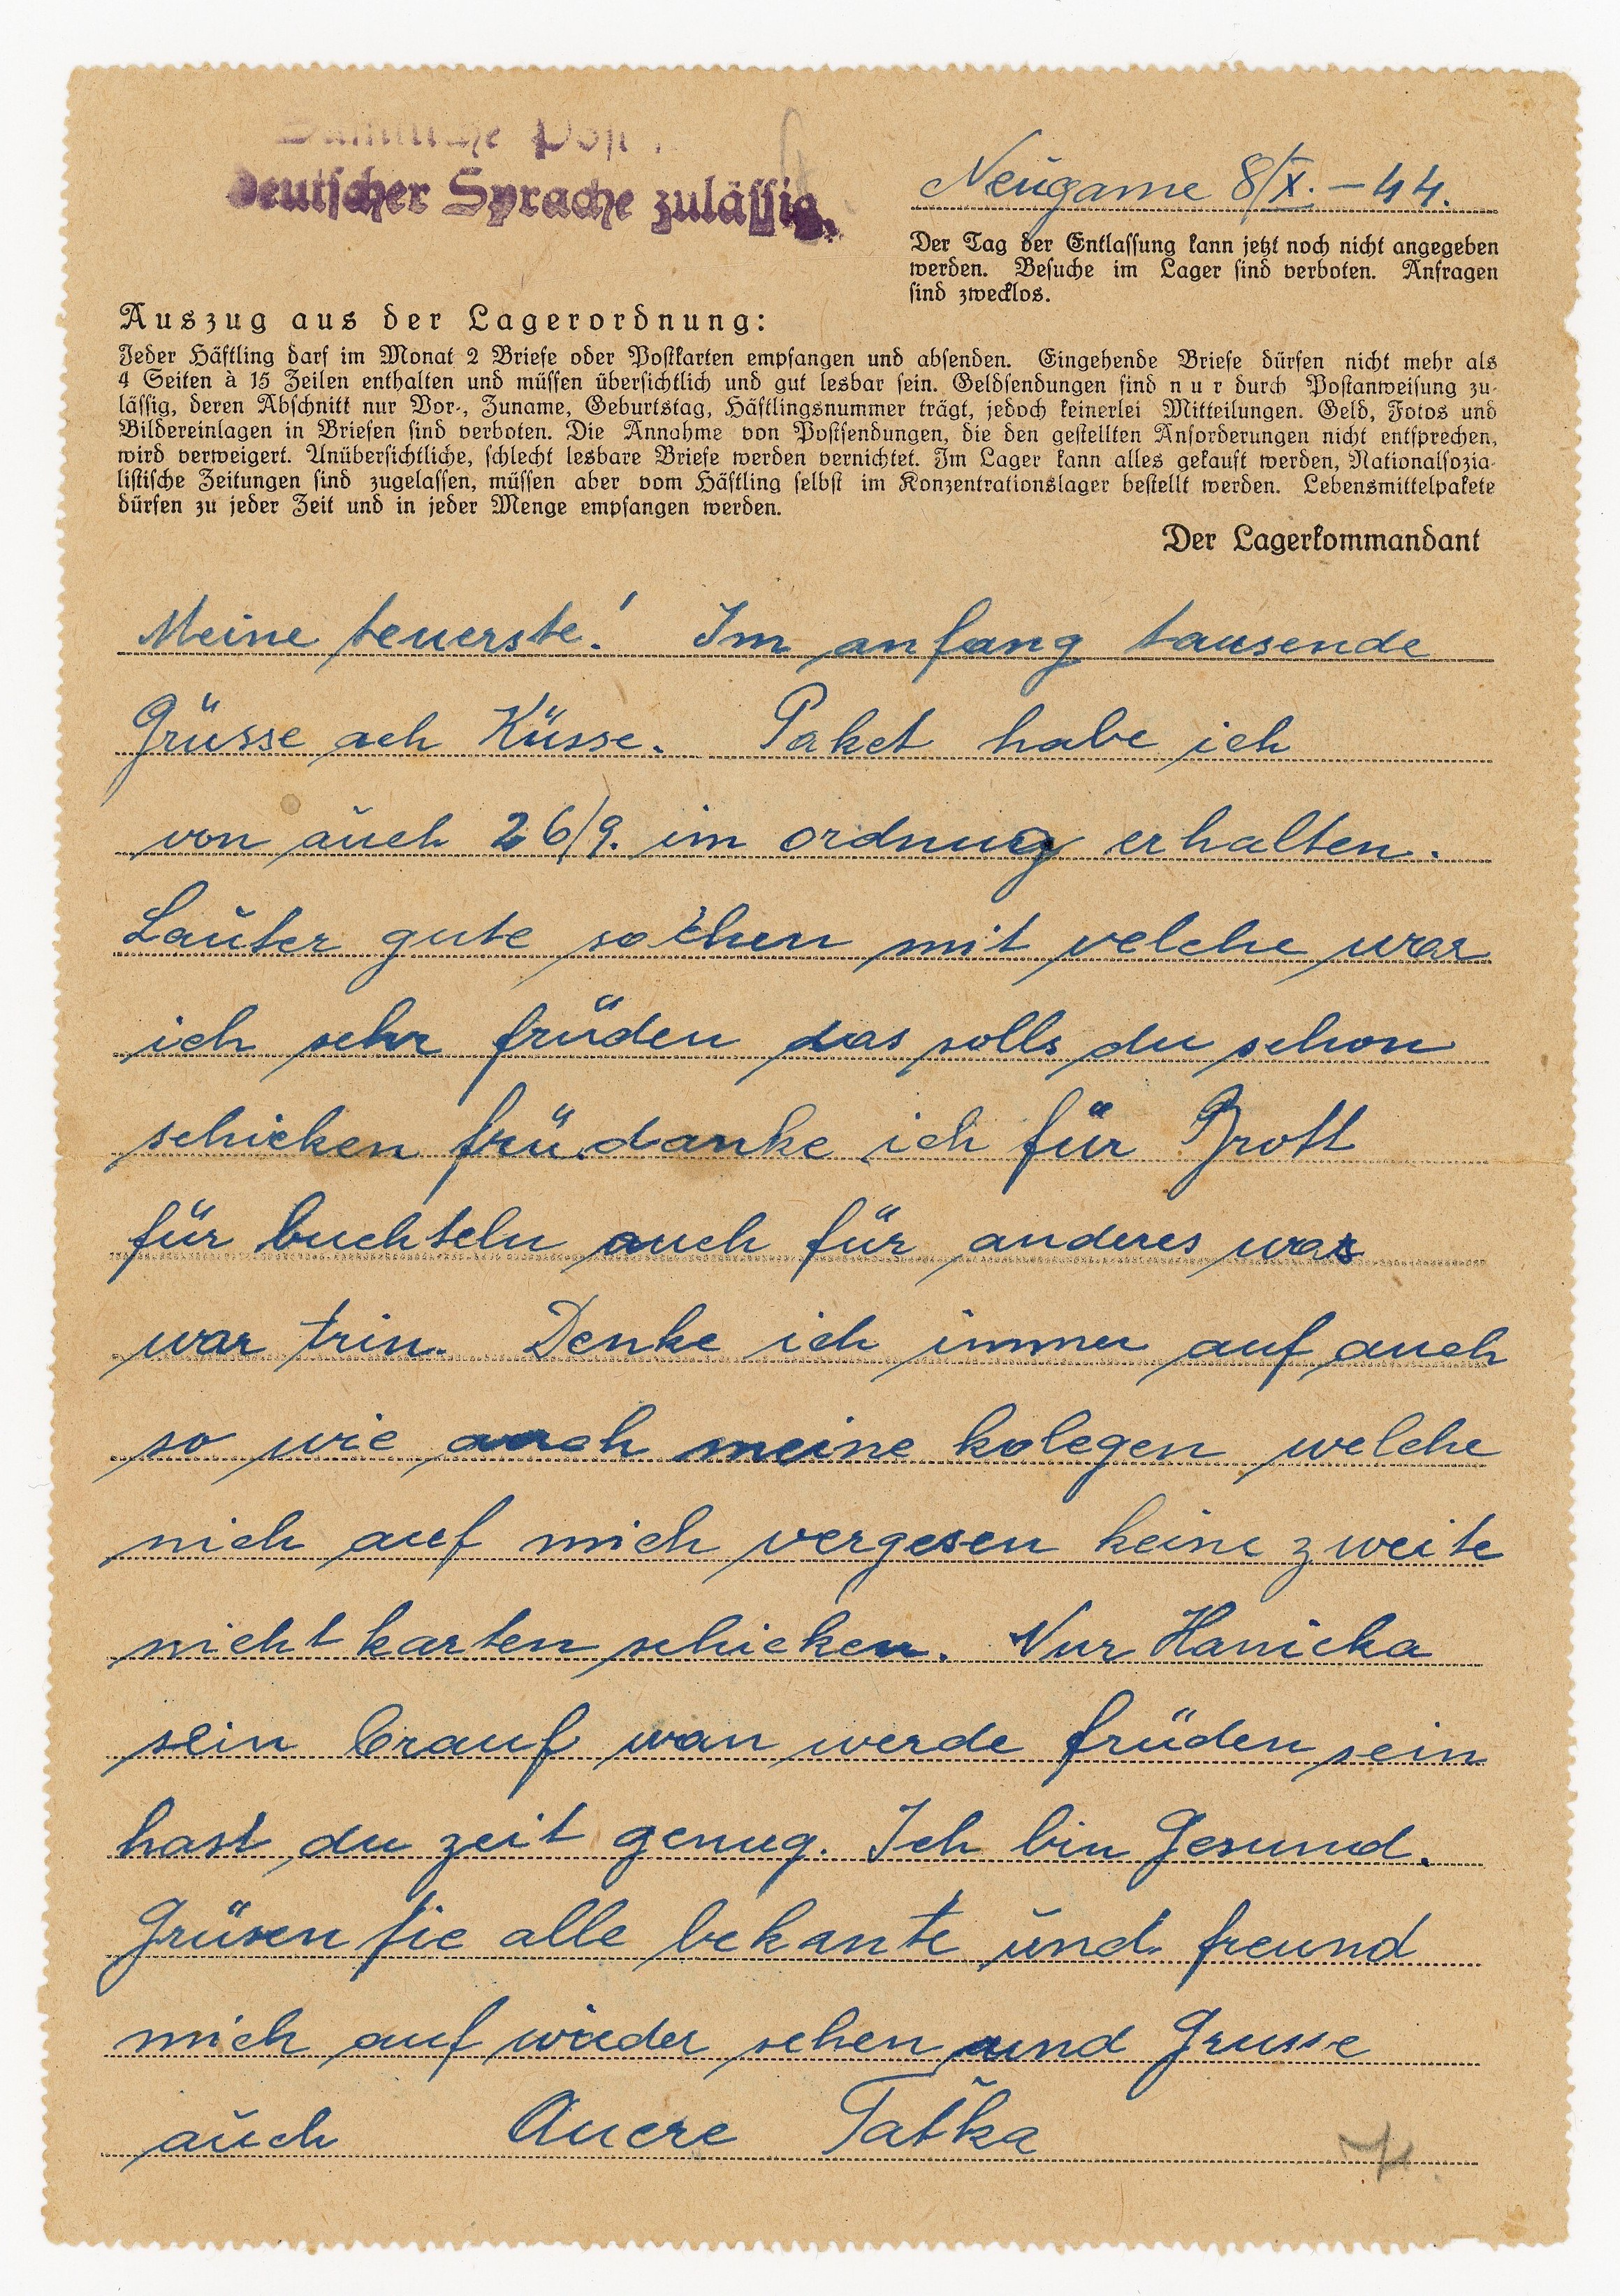 Sämtliche Post
deutscher Sprache zulässig.
Neugame 8/X. – 44.
Der Tag der Entlassung kann jetzt noch nicht angegeben
werden. Besuche im Lager sind verboten. Anfragen
sind zwecklos.
Auszug aus der Lagerordnung:
Jeder Häftling darf im Monat 2 Briefe oder Postkarten empfangen und absenden. Eingehende Briefe dürfen nicht mehr als
4 Seiten à 15 Zeilen enthalten und müssen übersichtlich und gut lesbar sein. Geldsendungen sind nur durch Postanweisung zu-
lässig, deren Abschnitt nur Vor-, Zuname, Geburtstag, Häftlingsnummer trägt, jedoch keinerlei Mitteilungen. Geld, Fotos und
Bildereinlagen in Briefen sind verboten. Die Annahme von Postsendungen, die den gestellten Anforderungen nicht entsprechen,
wird verweigert. Unübersichtliche, schlecht lesbare Briefe werden vernichtet. Im Lager kann alles gekauft werden, Nationalsozia-
listische Zeitungen sind zugelassen, müssen aber vom Häftling selbst im Konzentrationslager bestellt werden. Lebensmittelpakete
dürfen zu jeder Zeit und in jeder Menge empfangen werden.
Der Lagerkommandant
Meine teuerste! Im anfang tausende
Grüsse ach Küsse. Paket habe ich
von auch 26/9. im ordnung erhalten.
Lauter gute sachen mit velche war
ich sehr früden das solls du schon
schicken frü.danke ich für Brott
für buchteln auch für anderes was
war trin. Denke ich immer auf auch
so wie auch meine kolegen welche
nich auf mich vergesen keine zweite
nicht karten schicken. Nur Hanicka
sein brauf wan werde früden sein
hast du zeit genug. Ich bin Gesund.
Grüsen sie alle bekante und freund
mich auf wieder sehen und Grusse
auch Auere Taťka